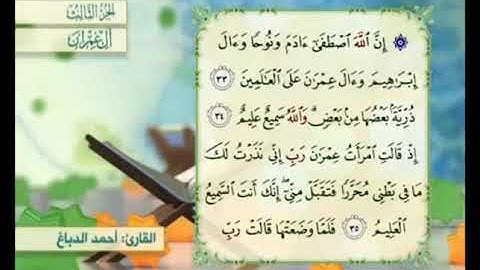 الجزء الثالث
آل عمران
۞ إِنَّ ٱللَّهَ ٱصْطَفَىٰٓ ءَادَمَ وَنُوحًا وَءَالَ
إِبْرَٰهِيمَ وَءَالَ عِمْرَٰنَ عَلَى ٱلْعَٰلَمِينَ ٣٣
ذُرِّيَّةًۢ بَعْضُهَا مِنۢ بَعْضٍۗ وَٱللَّهُ سَمِيعٌ عَلِيمٌ ٣٤
إِذْ قَالَتِ ٱمْرَأَتُ عِمْرَٰنَ رَبِّ إِنِّي نَذَرْتُ لَكَ
مَا فِي بَطْنِي مُحَرَّرًا فَتَقَبَّلْ مِنِّيٓۖ إِنَّكَ أَنتَ ٱلسَّمِيعُ
ٱلْعَلِيمُ ٣٥ فَلَمَّا وَضَعَتْهَا قَالَتْ رَبِّ
القارئ: أحمد الدباغ